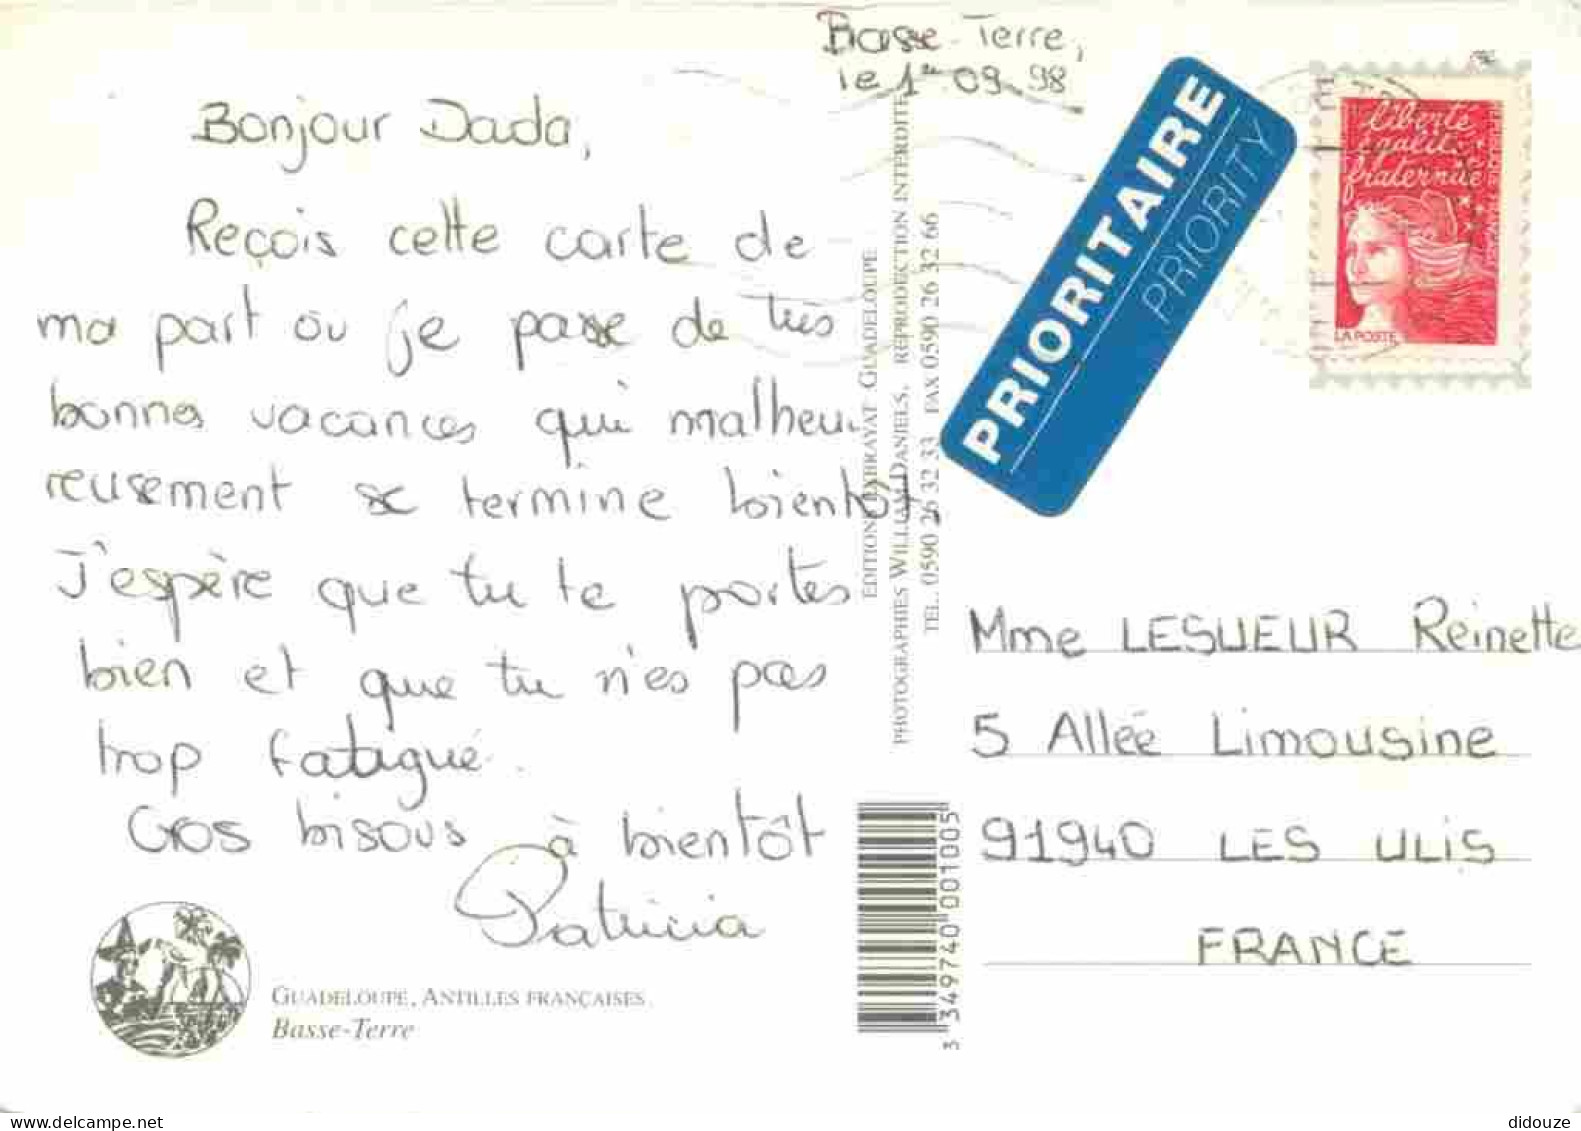 Basse-Terre,
le 1er 09.98
Bonjour Dada,
Reçois cette carte de
ma part où je passe de très
bonnes vacances qui malheu-
reusement se termine bientôt.
J'espère que tu te portes
bien et que tu n'es pas
trop fatigué.
Gros bisous à bientôt
Patricia
GUADELOUPE, ANTILLES FRANÇAISES
Basse-Terre
PHOTOGRAPHIES WILLIAM DANIELS, REPRODUCTION INTERDITE
TEL. 0590 26 32 33 FAX 0590 26 32 66
3 349740 001005
PRIORITAIRE
PRIORITY
liberté
égalité
fraternité
LA POSTE
Mme LESUEUR Reinette
5 Allée Limousine
91940 LES ULIS
FRANCE
delcampe.net
didouze